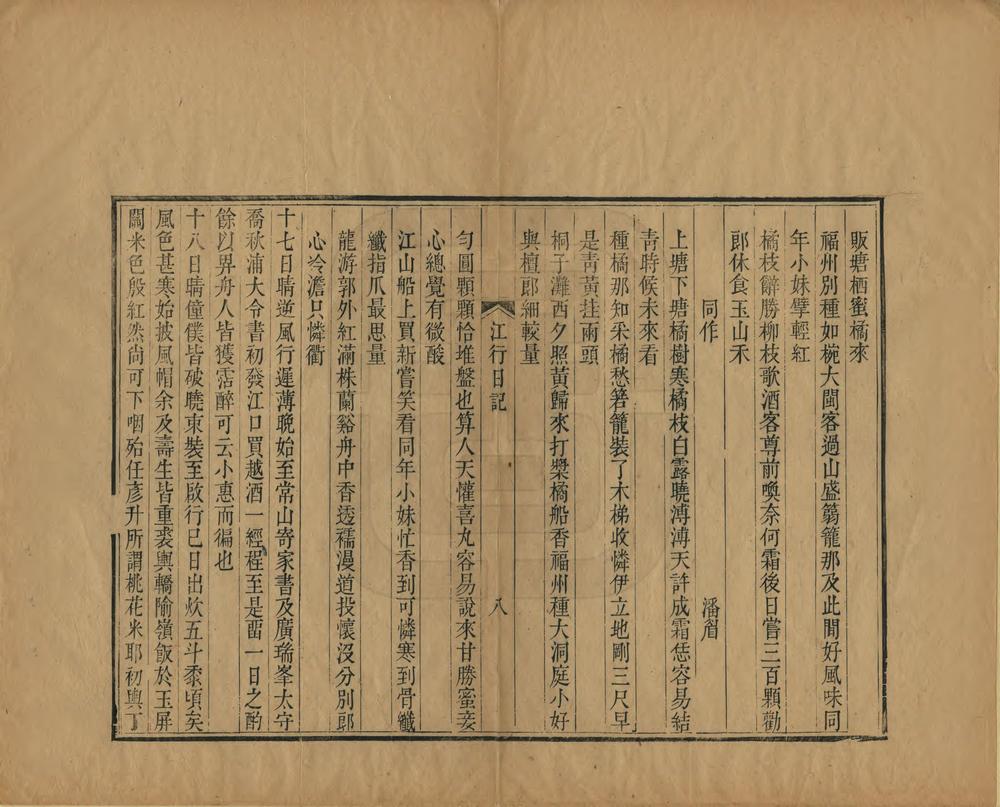 販塘栖蜜橘來
福州別種如椀大閩客過山盛篛籠那及此間好風味同
年小妹擘輕紅
橘枝辭勝柳枝歌酒客尊前喚奈何霜後日嘗三百顆勸
郎休食玉山禾
同作　潘眉
上塘下塘橘樹寒橘枝白露曉漙漙天許成霜恁容易結
青時候未來看
種橘那知采橘愁箬籠裝了木梯收憐伊立地剛三尺早
是青黃挂兩頭
桐子灘西夕照黃歸來打槳橘船香福州種大洞庭小好
與檀郎細較量
江行日記　八
勻圓顆顆恰堆盤也算人天懽喜丸容易說來甘勝蜜妾
心總覺有微酸
江山船上買新嘗笑看同年小妹忙香到可憐寒到骨纖
纖指爪最思量
龍游郭外紅滿株蘭谿舟中香透襦漫道投懷沒分別郎
心冷澹只憐衢
十七日晴逆風行遲薄晚始至常山寄家書及廣瑞峯太守
喬秋浦大令書初發江口買越酒一經程至是畱一日之酌
餘以畀舟人皆獲霑醉可云小惠而徧也
十八日晴僮僕皆破曉束裝至啟行已日出炊五斗黍頃矣
風色甚寒始披風帽余及壽生皆重裘輿轎隃嶺飯於玉屏
關米色殷紅然尚可下咽殆任彥升所謂桃花米耶初輿丁